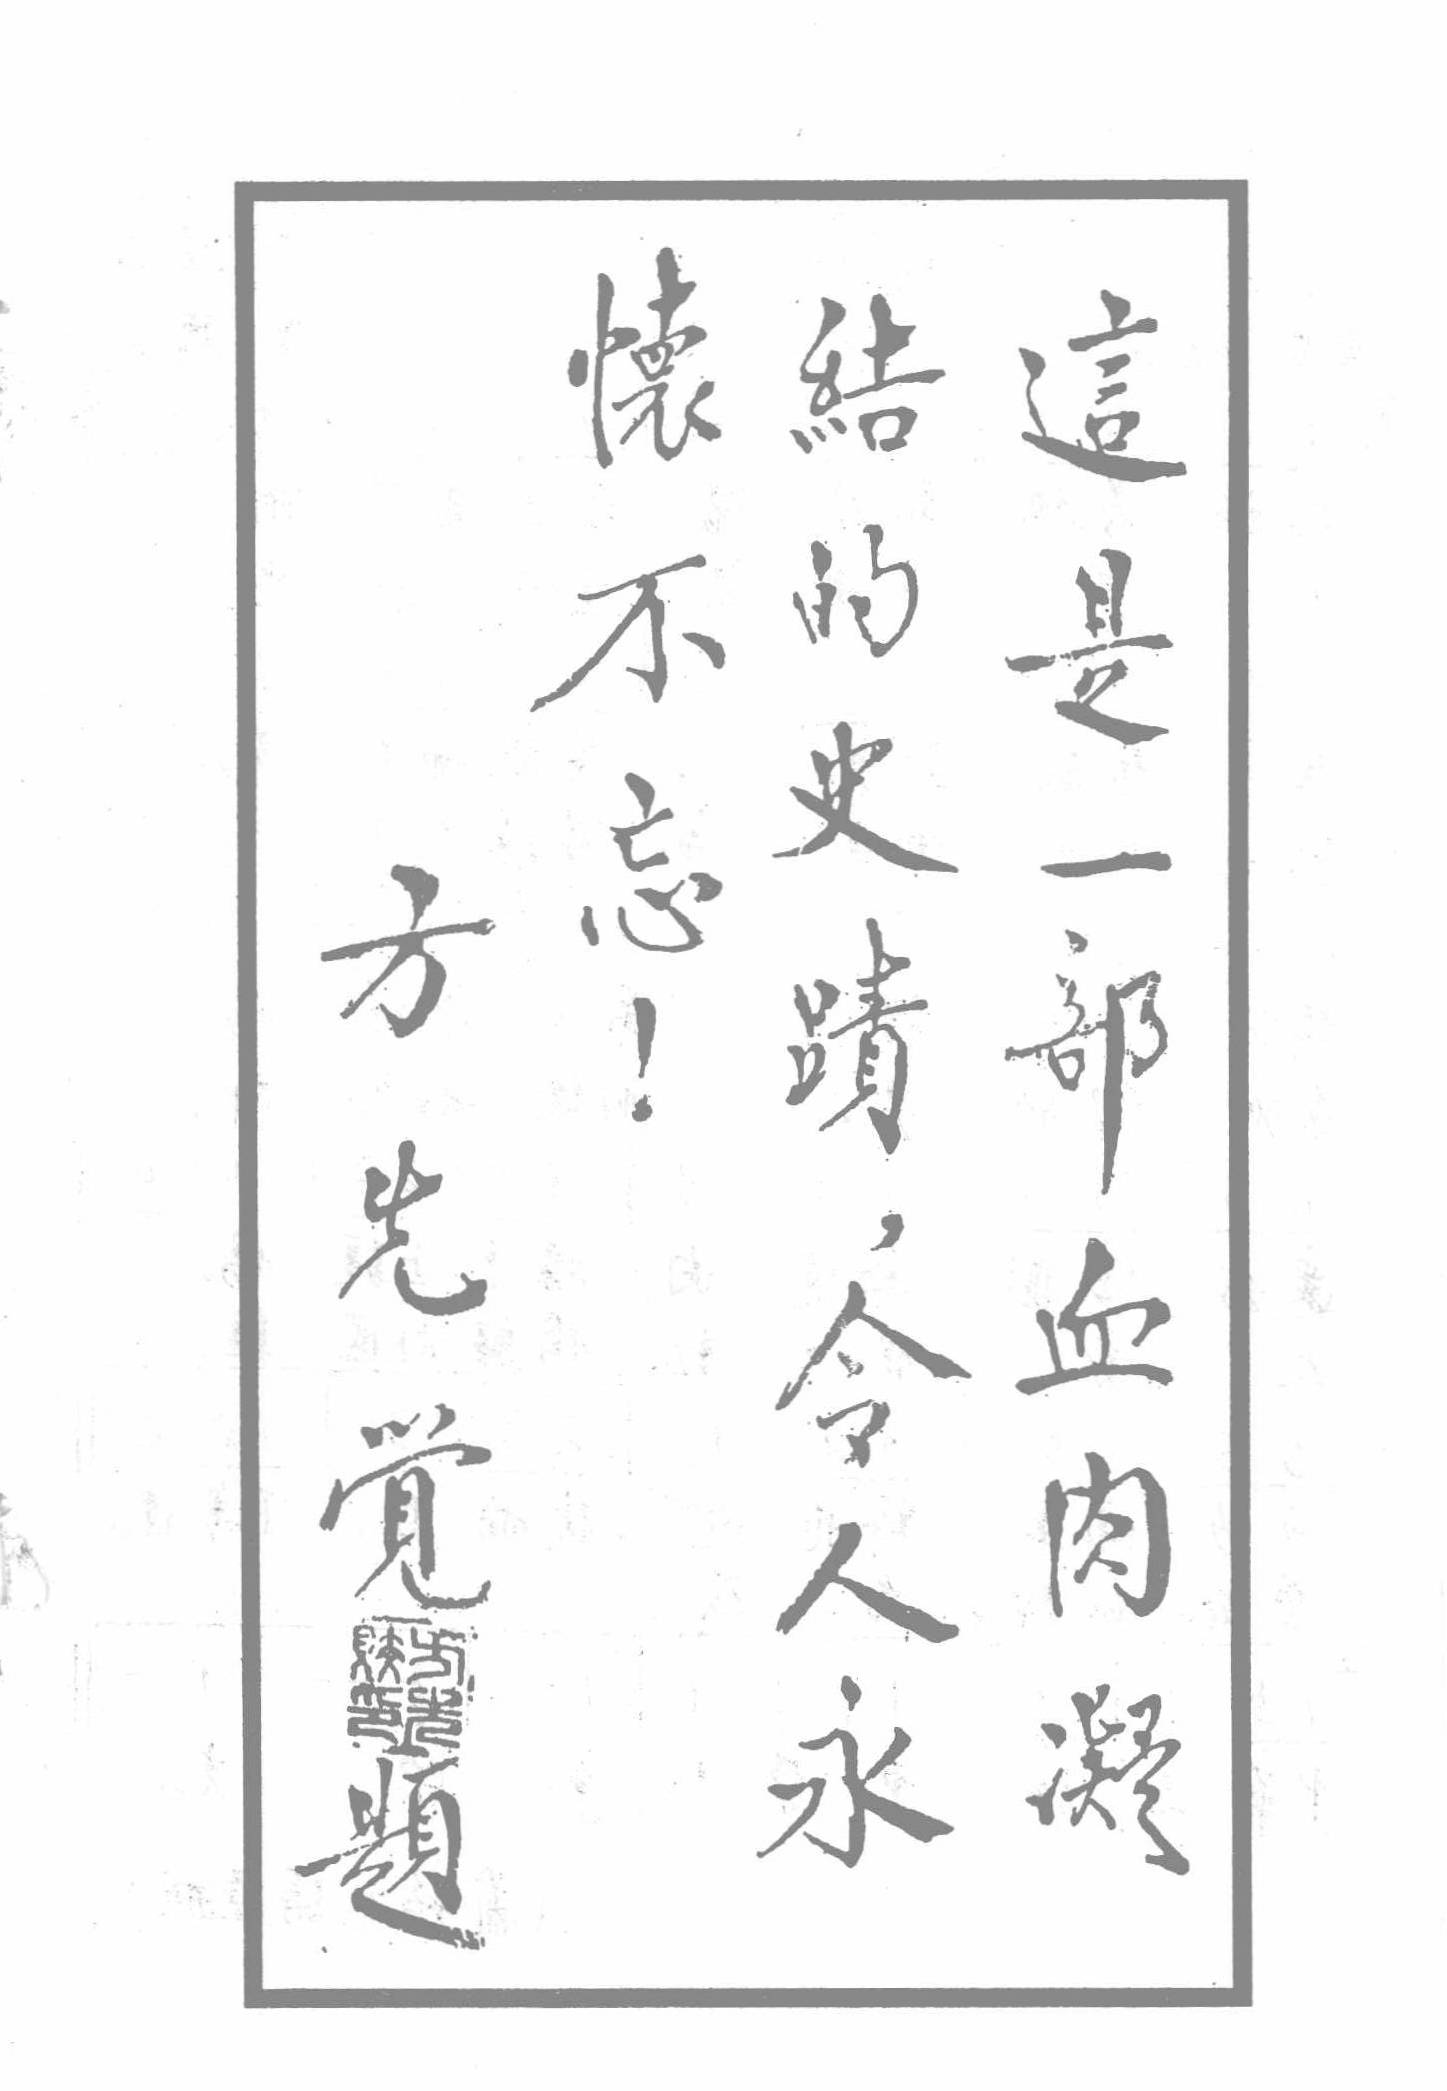 這是一部血肉凝
結的史蹟，令人永
懷不忘！
方先覺題